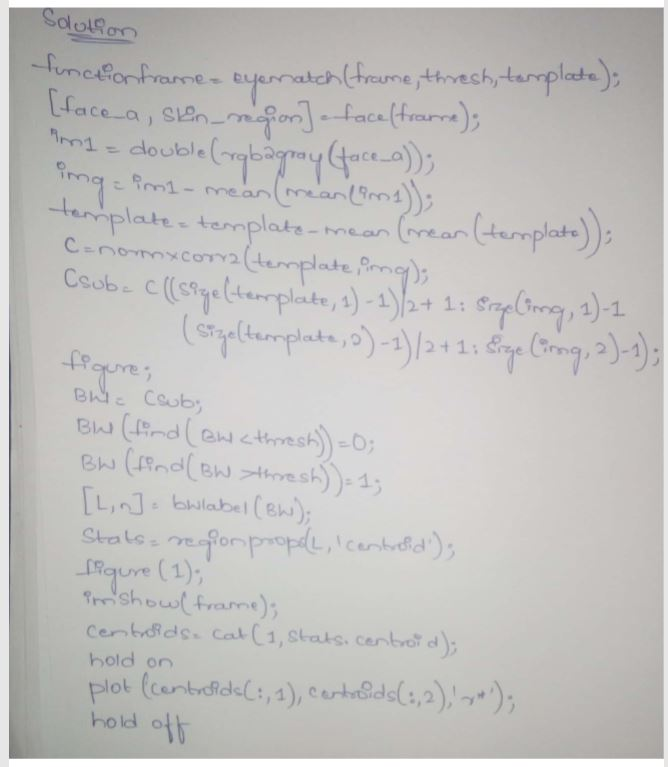 Solution
functionframe = eyematch(frame, thresh, template);
[face_a, skin_region] = face(frame);
im1 = double(rgb2gray(face_a));
img = im1 - mean(mean(im1));
template = template - mean(mean(template));
C = normxcorr2(template, img);
Csub = C((size(template, 1) - 1)/2 + 1 : size(img, 1) - 1
(size(template, 2) - 1)/2 + 1 : size(img, 2) - 1);
figure;
BW = Csub;
BW(find(BW < thresh)) = 0;
BW(find(BW > thresh)) = 1;
[L, n] = bwlabel(BW);
Stats = regionprops(L, 'centroid');
figure(1);
imshow(frame);
centroids = cat(1, stats.centroid);
hold on
plot(centroids(:,1), centroids(:,2), 'r*');
hold off